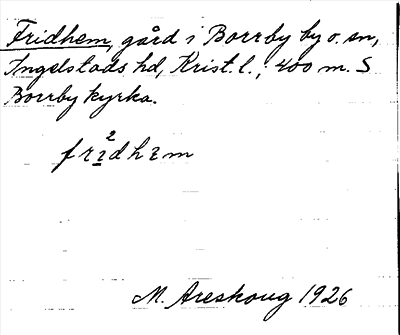 Fridhem, gård i Borrby by o. sn,
Ingelstads hd, Krist. l.; 400 m. S
Borrby kyrka.
2
frɪdhɛm
M. Areskoug 1926